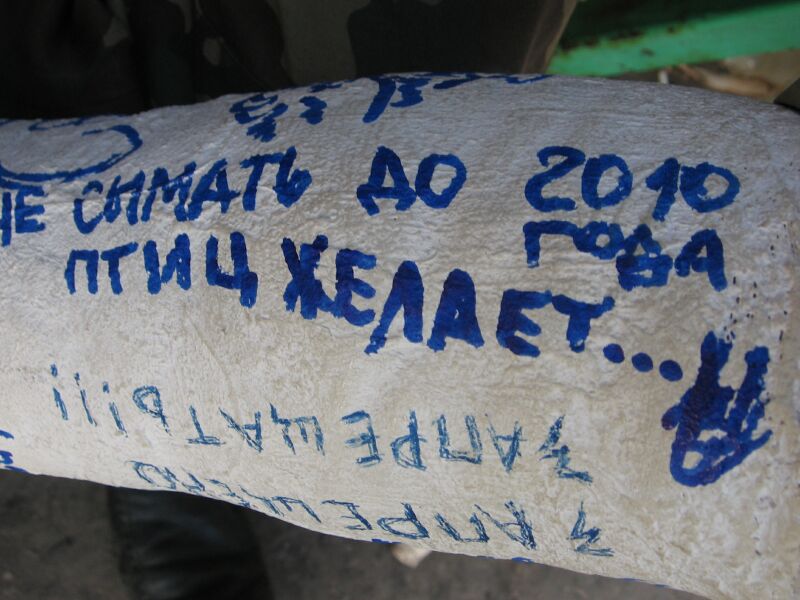 НЕ СНМАТЬ ДО 2010
ГОДА
ПТИЦ ЖЕЛАЕТ...
ЗАПРЕЩЕНО
ЗАПРЕЩАТЬ!!!